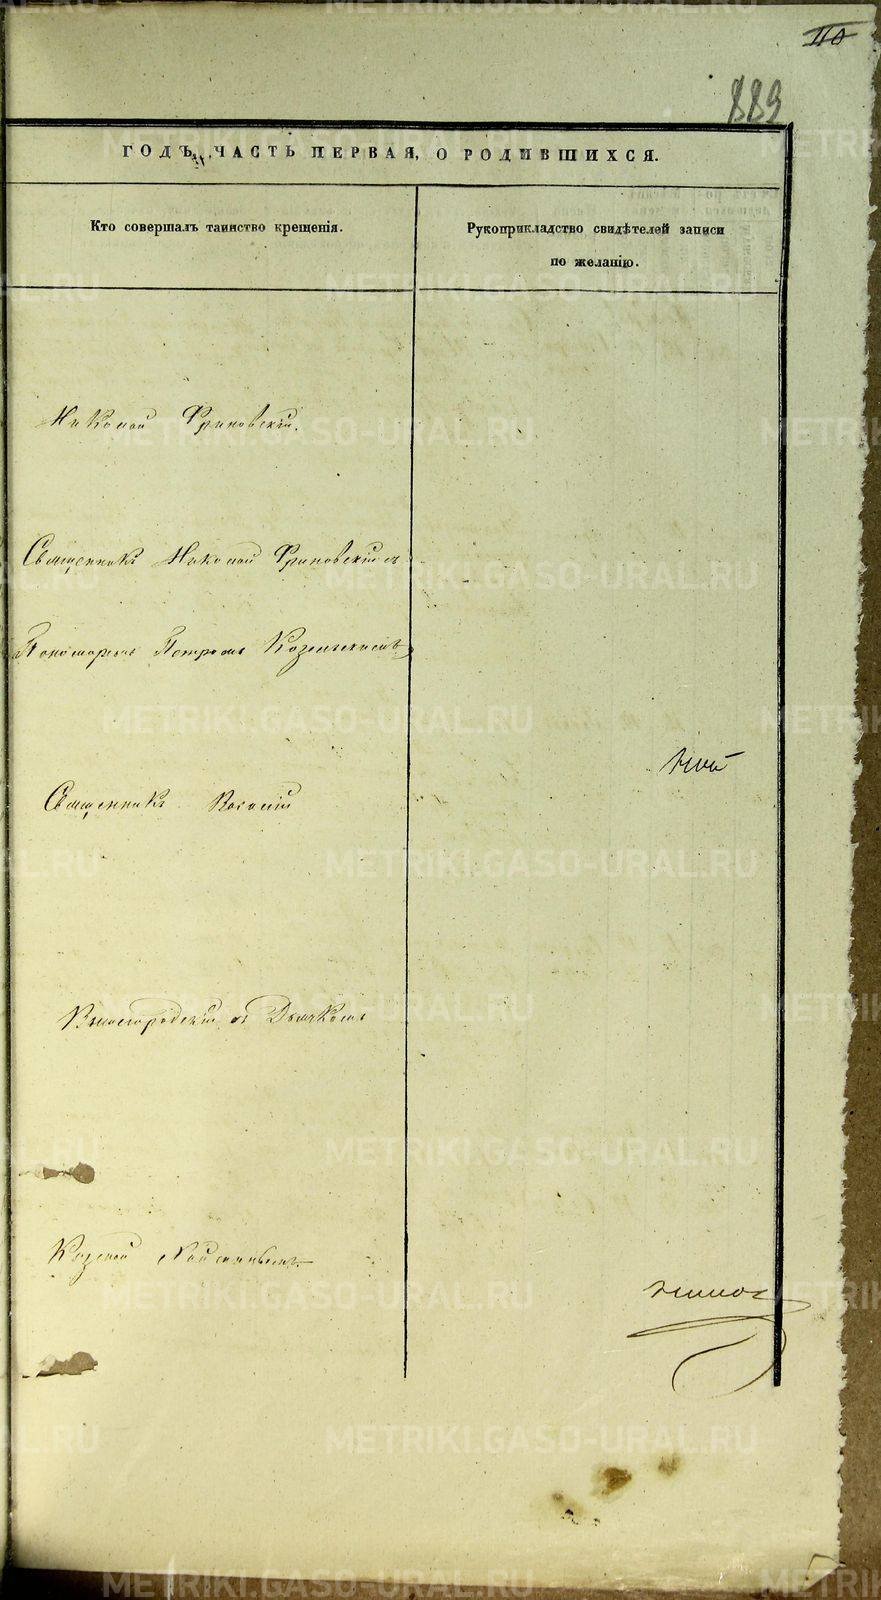 110
889
ГОДЪ, ЧАСТЬ ПЕРВАЯ, О РОДИВШИХСЯ.
Кто совершалъ таинство крещенія.
Рукоприкладство свидѣтелей записи
по желанію.
Николай Фриновскій.
Священникъ Николай Фриновскій съ
Пономаремъ Петромъ
Священникъ Василій
Вышгородскій съ Дьячкомъ
METRIKI.GASO-URAL.RU